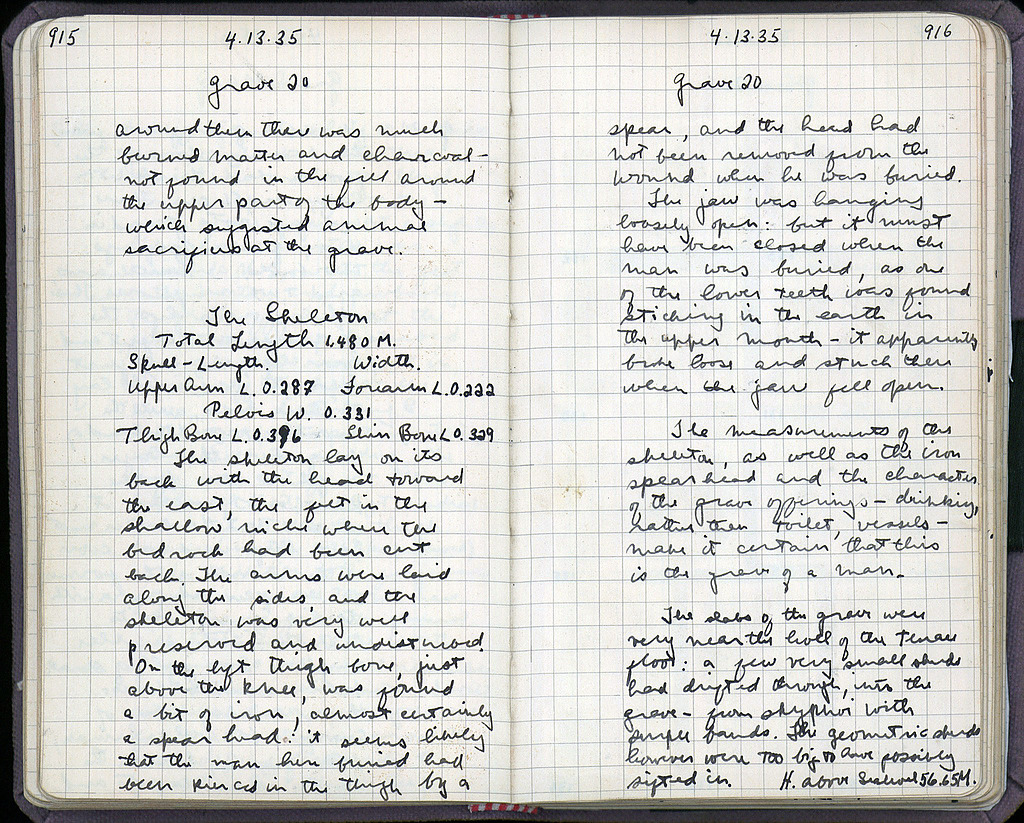 915
4.13.35
Grave 20
around them there was much
burned matter and charcoal –
not found in the fill around
the upper part of the body –
which suggested animal
sacrifices at the grave.
The Skeleton
Total Length 1.480 M.
Skull – Length. Width.
Upper Arm L. 0.287 Forearm L. 0.222
Pelvis W. 0.331
Thigh Bone L. 0.396 Shin Bone L 0.329
The skeleton lay on its
back with the head toward
the east, the feet in the
shallow niche where the
bedrock had been cut
back. The arms were laid
along the sides, and the
skeleton was very well
preserved and undisturbed.
On the left thigh bone, just
above the knee, was found
a bit of iron, almost certainly
a spear head: it seems likely
that the man here buried had
been pierced in the thigh by a
4.13.35
916
Grave 20
spear, and the head had
not been removed from the
wound when he was buried.
The jaw was hanging
loosely open: but it must
have been closed when the
man was buried, as one
of the lower teeth was found
sticking in the earth in
the upper mouth – it apparently
broke loose and stuck there
when the jaw fell open.
The measurements of the
skeleton, as well as the iron
spearhead and the character
of the grave offerings – drinking,
rather than toilet, vessels –
make it certain that this
is the grave of a man.
The slabs of the grave were
very near the level of the Terrace
floor: a few very small sherds
had drifted through, into the
grave – from skyphoi with
simple bands. The geometric sherds
however were too big to have possibly
sifted in. H. above Sealevel 56.65 M.